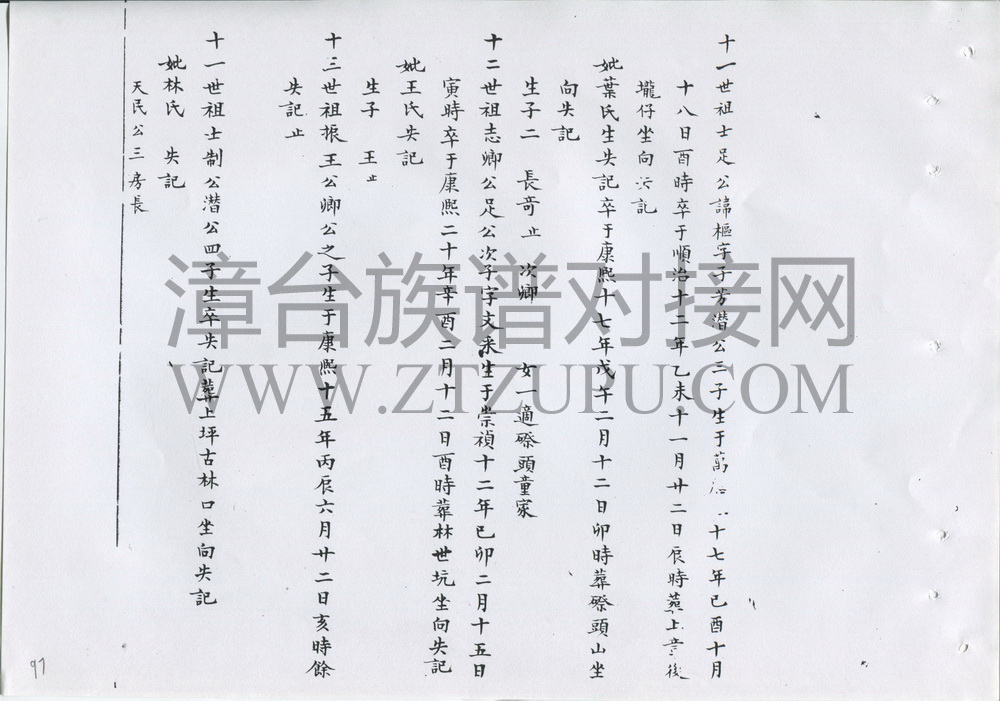 十一世祖士足公諱樞字子芳潛公三子生于萬 十七年己酉十月
十八日酉時卒于順治十二年乙未十一月廿二日辰時葬上 後
壠仔坐向失記
妣葉氏生失記卒于康熙十七年戊午二月十二日卯時葬磜頭山坐
向失記
生子二 長奇止 次卿 女一適磜頭童家
十二世祖志卿公足公次子字文釆生于崇禎十二年己卯二月十五日
寅時卒于康熙二十年辛酉二月十二日酉時葬林世坑坐向失記
妣王氏失記
生子 王止
十三世祖振王公卿公之子生于康熙十五年丙辰六月廿二日亥時餘
失記止
十一世祖士制公潛公四子生卒失記葬上坪古林口坐向失記
妣林氏 失記
天民公三房長
漳台族谱对接网
WWW.ZTZUPU.COM
97